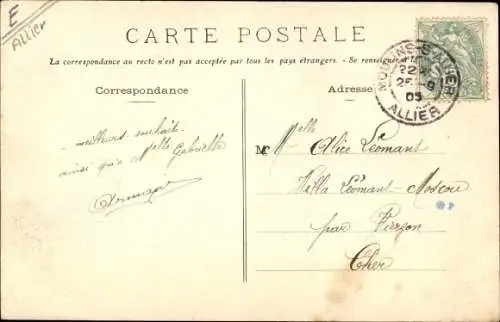 E
Allier
CARTE POSTALE
La correspondance au recto n'est pas acceptée par tous les pays étrangers. — Se renseigner
Correspondance
Adresse
MOULINS-S-ALLIER
22
25 -9
05
ALLIER
meilleurs souhaits
ainsi qu'a Melle Gabrielle
M Melle Alice Léomant
Villa Léomant-Moscou
par Vierzon
Cher